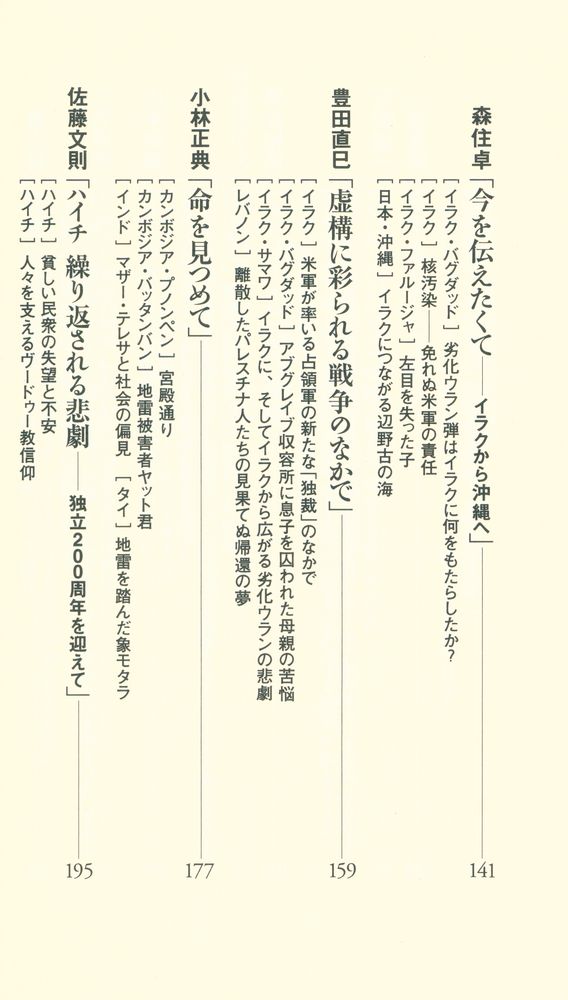 森住卓「今を伝えたくて――イラクから沖縄へ」141
［イラク・バグダッド］劣化ウラン弾はイラクに何をもたらしたか？
［イラク］核汚染――免れぬ米軍の責任
［イラク・ファルージャ］左目を失った子
［日本・沖縄］イラクにつながる辺野古の海
豊田直巳「虚構に彩られる戦争のなかで」159
［イラク］米軍が率いる占領軍の新たな「独裁」のなかで
［イラク・バグダッド］アブグレイブ収容所に息子を囚われた母親の苦悩
［イラク・サマワ］イラクに、そしてイラクから広がる劣化ウランの悲劇
［レバノン］離散したパレスチナ人たちの見果てぬ帰還の夢
小林正典「命を見つめて」177
［カンボジア・プノンペン］宮殿通り
［カンボジア・バッタンバン］地雷被害者ヤット君
［インド］マザー・テレサと社会の偏見　［タイ］地雷を踏んだ象モタラ
佐藤文則「ハイチ 繰り返される悲劇――独立200周年を迎えて」195
［ハイチ］貧しい民衆の失望と不安
［ハイチ］人々を支えるヴードゥー教信仰